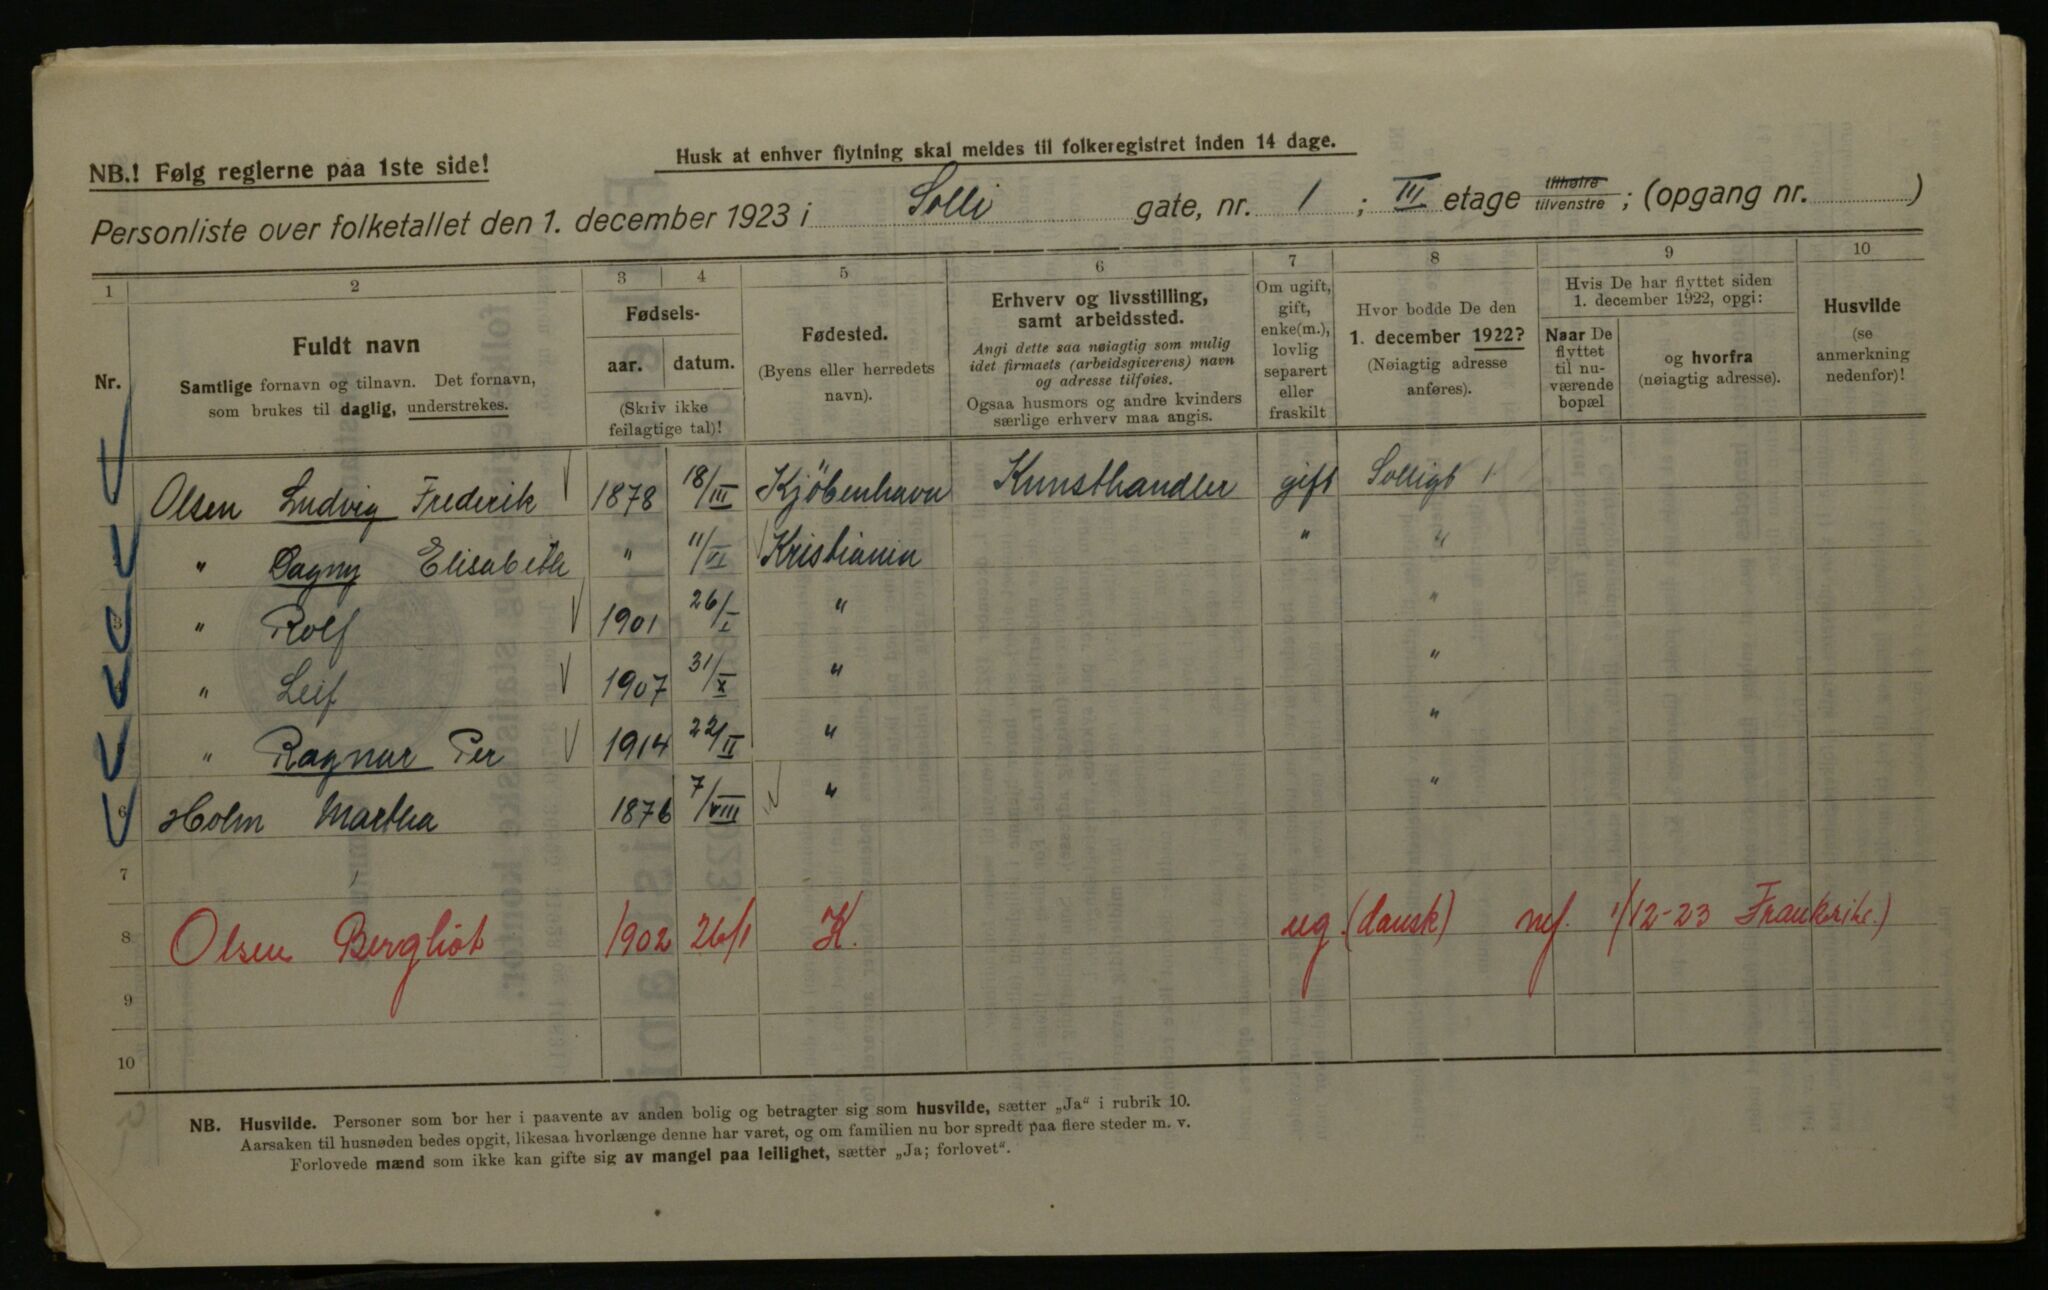 NB.! Følg reglerne paa 1ste side!
Husk at enhver flytning skal meldes til folkeregistret inden 14 dage.
Personliste over folketallet den 1. december 1923 i Solli gate, nr. 1 ; III etage tilhøire tilvenstre ; (opgang nr. )
1 2 3 4 5 6 7 8 9 10
Nr.
Fuldt navn
Samtlige fornavn og tilnavn. Det fornavn,
som brukes til daglig, understrekes.
Fødsels-
aar. datum.
(Skriv ikke
feilagtige tal)!
Fødested.
(Byens eller herredets
navn).
Erhverv og livsstilling,
samt arbeidssted.
Angi dette saa nøiagtig som mulig
idet firmaets (arbeidsgiverens) navn
og adresse tilføies.
Ogsaa husmors og andre kvinders
særlige erhverv maa angis.
Om ugift,
gift,
enke(m.),
lovlig
separert
eller
fraskilt
Hvor bodde De den
1. december 1922?
(Nøiagtig adresse
anføres).
Hvis De har flyttet siden
1. december 1922, opgi:
Naar De
flyttet
til nu-
værende
bopæl
og hvorfra
(nøiagtig adresse).
Husvilde
(se
anmerkning
nedenfor)!
Olsen Ludvig Frederik 1878 18/III Kjöbenhavn Kunsthandler gift Solligt 1
" Dagny Elisabeth " 11/VI Kristiania " "
" Rolf 1901 26/I " "
" Leif 1907 31/X " "
" Ragnar Per 1914 22/II " "
6 Holm Martha 1876 7/VIII " "
7
8 Olsen Bergliot 1902 26/1 K. ug. (dansk) nf. 1/12-23 Frankrike.)
9
10
NB. Husvilde. Personer som bor her i paavente av anden bolig og betragter sig som husvilde, sætter „Ja“ i rubrik 10.
Aarsaken til husnøden bedes opgit, likesaa hvorlænge denne har varet, og om familien nu bor spredt paa flere steder m. v.
Forlovede mænd som ikke kan gifte sig av mangel paa leilighet, sætter „Ja; forlovet“.